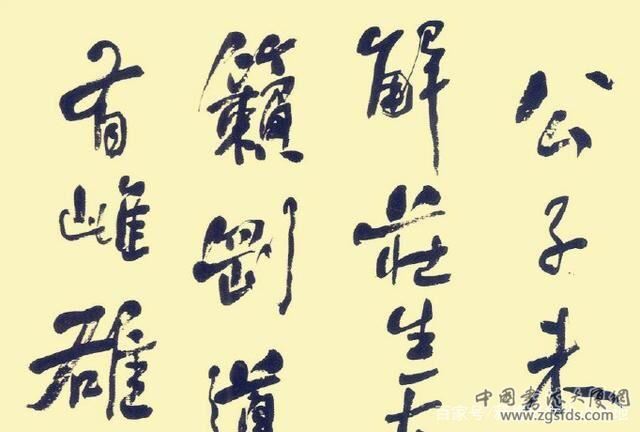 公子未
解莊生天
籟剛道
有雌雄
中國書法大厦網
百家号/
www.zgsfds.com